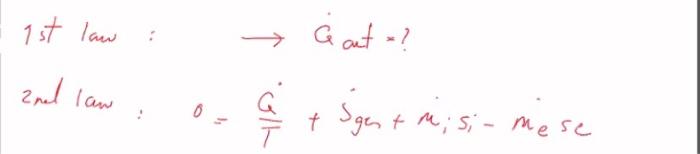 1st law : → Q̇ out = ?
2nd law : 0 = Q̇/T + Ṡgen + ṁi si - ṁe se